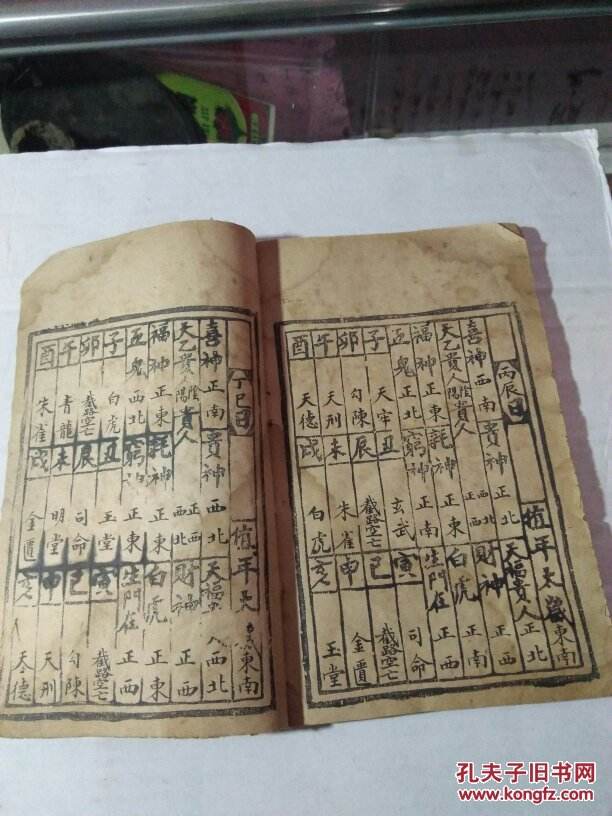 丙辰日 值年太歲東南
喜神西南 貴神正北 天福貴人正北
天乙貴人 陰陽貴人 正西 正北 財神正西
福神正東 耗神正東 白虎正南
五鬼正北 窮神正南 生門在正西
子 天牢 丑 玄武 寅 司命
卯 勾陳 辰 截路空亡 巳 截路空亡
午 天刑 未 朱雀 申 金匱
酉 天德 戌 白虎 亥 玉堂
丁巳日 值年太 東南
喜神正南 貴神西北 天福 人西北
天乙貴人 陰陽貴人 正西 西北 財神正西
福神正東 耗神正東 白虎正東
五鬼西北 窮神正東 生門在正西
子 白虎 丑 玉堂 寅 截路空亡
卯 截路空亡 辰 司命 巳 勾陳
午 青龍 未 明堂 申 天刑
酉 朱雀 戌 金匱 亥 天德
孔夫子旧书网
www.kongfz.com